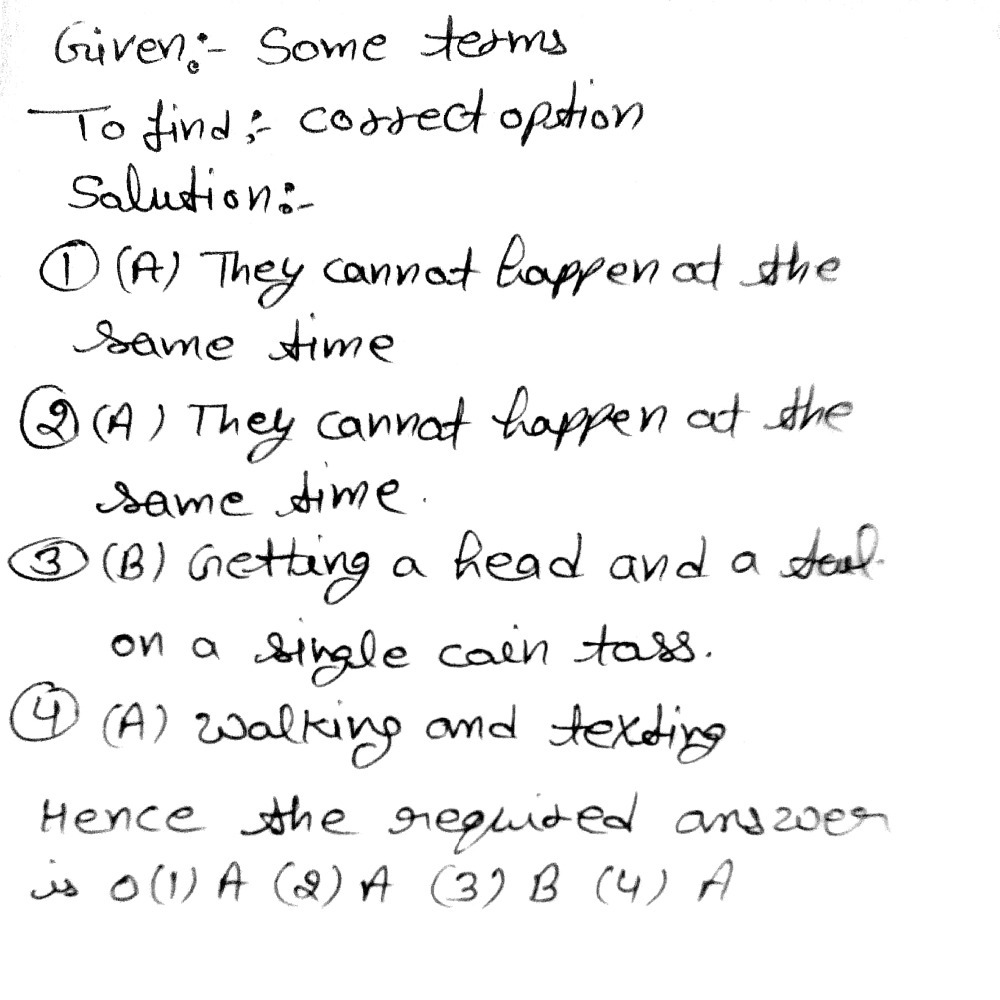 Given:- Some terms
To find:- correct option
Salution:-
① (A) They cannot happen at the
same time
② (A) They cannot happen at the
same time.
③ (B) Getting a head and a tail
on a single cain tass.
④ (A) Walking and texting
Hence the required answer
is 0(1) A (2) A (3) B (4) A